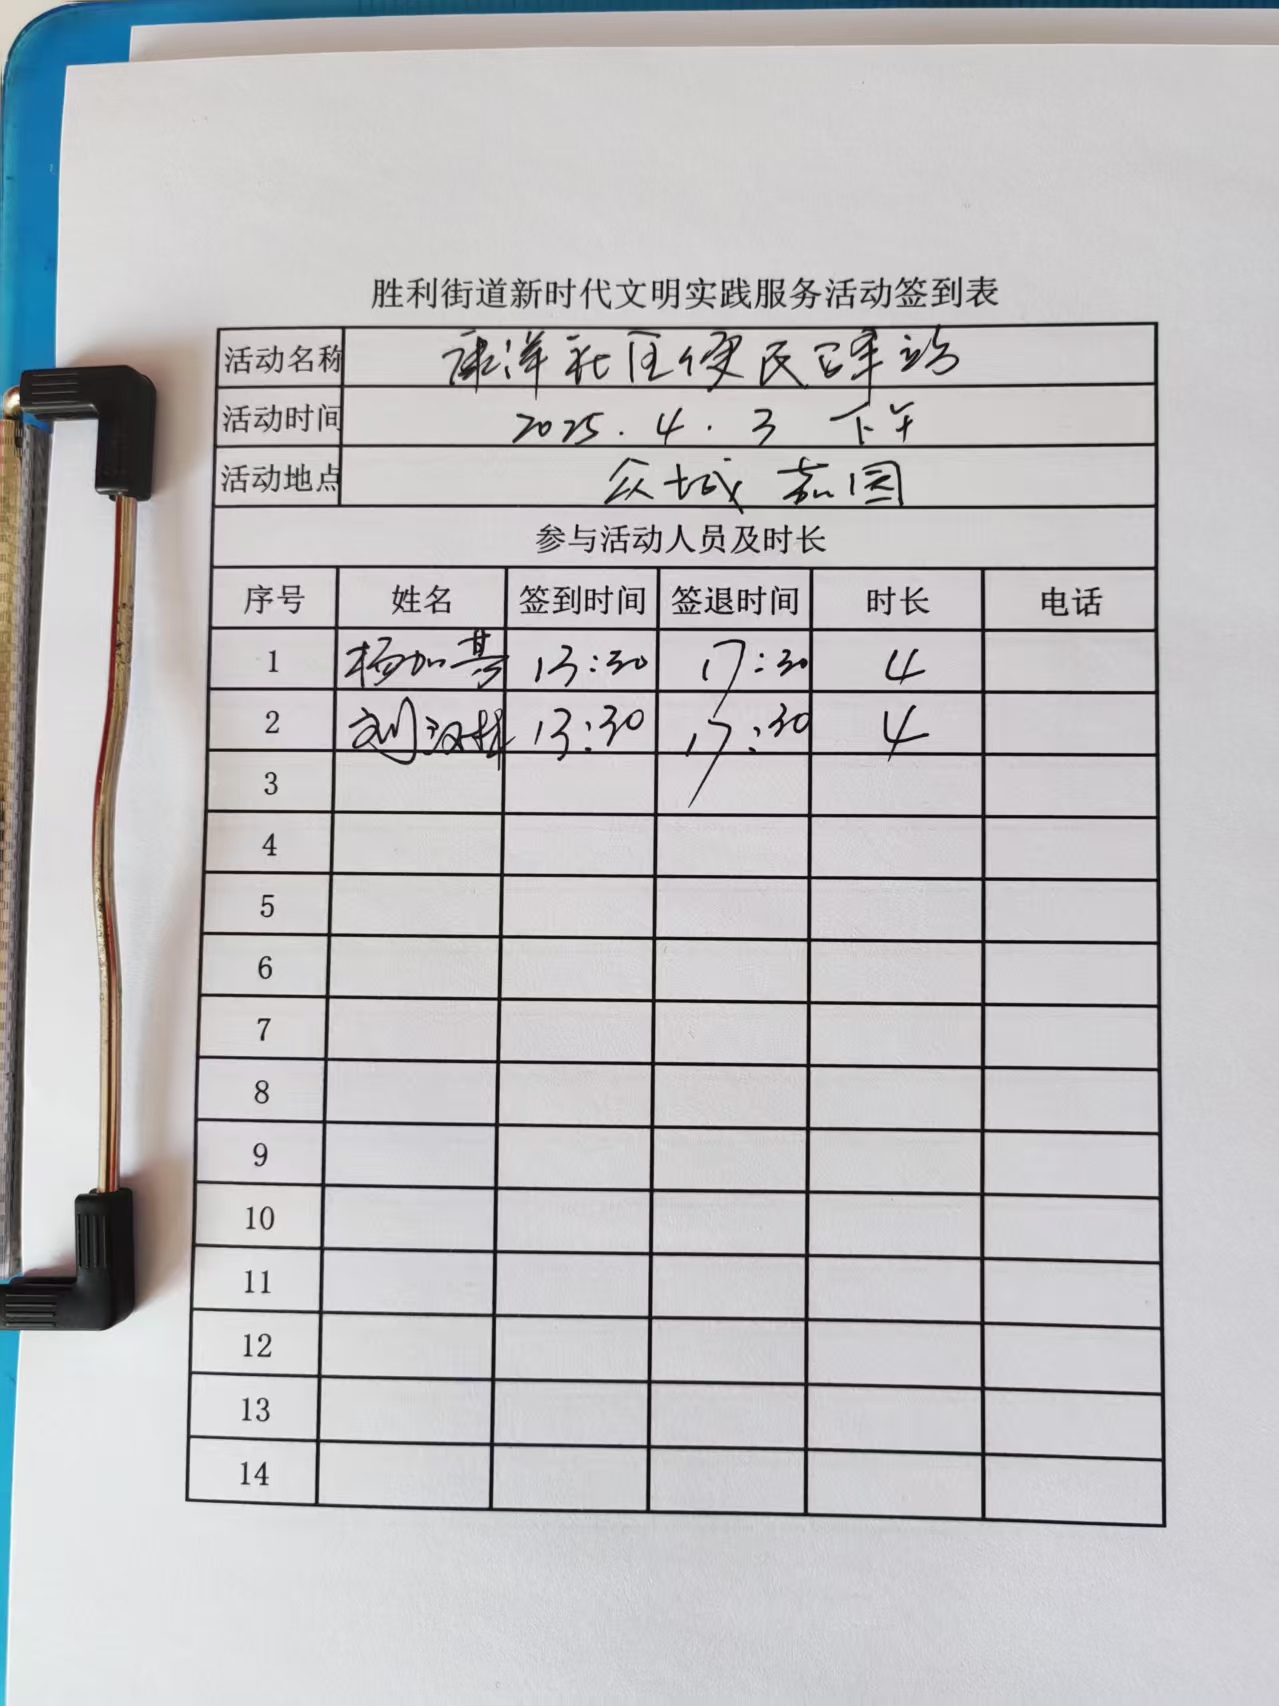 胜利街道新时代文明实践服务活动签到表
活动名称 康洋社区便民驿站
活动时间 2025.4.3 下午
活动地点 众城嘉园
参与活动人员及时长
序号 姓名 签到时间 签退时间 时长 电话
1 杨加基 13:30 17:30 4
2 刘汉林 13:30 17:30 4
3
4
5
6
7
8
9
10
11
12
13
14